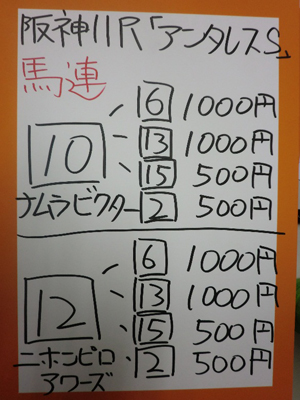 阪神11R「アンタレスS」
馬連
6 1000円
13 1000円
10
15 500円
ナムラビクター 2 500円
6 1000円
13 1000円
12
15 500円
ニホンピロ 2 500円
アワーズ